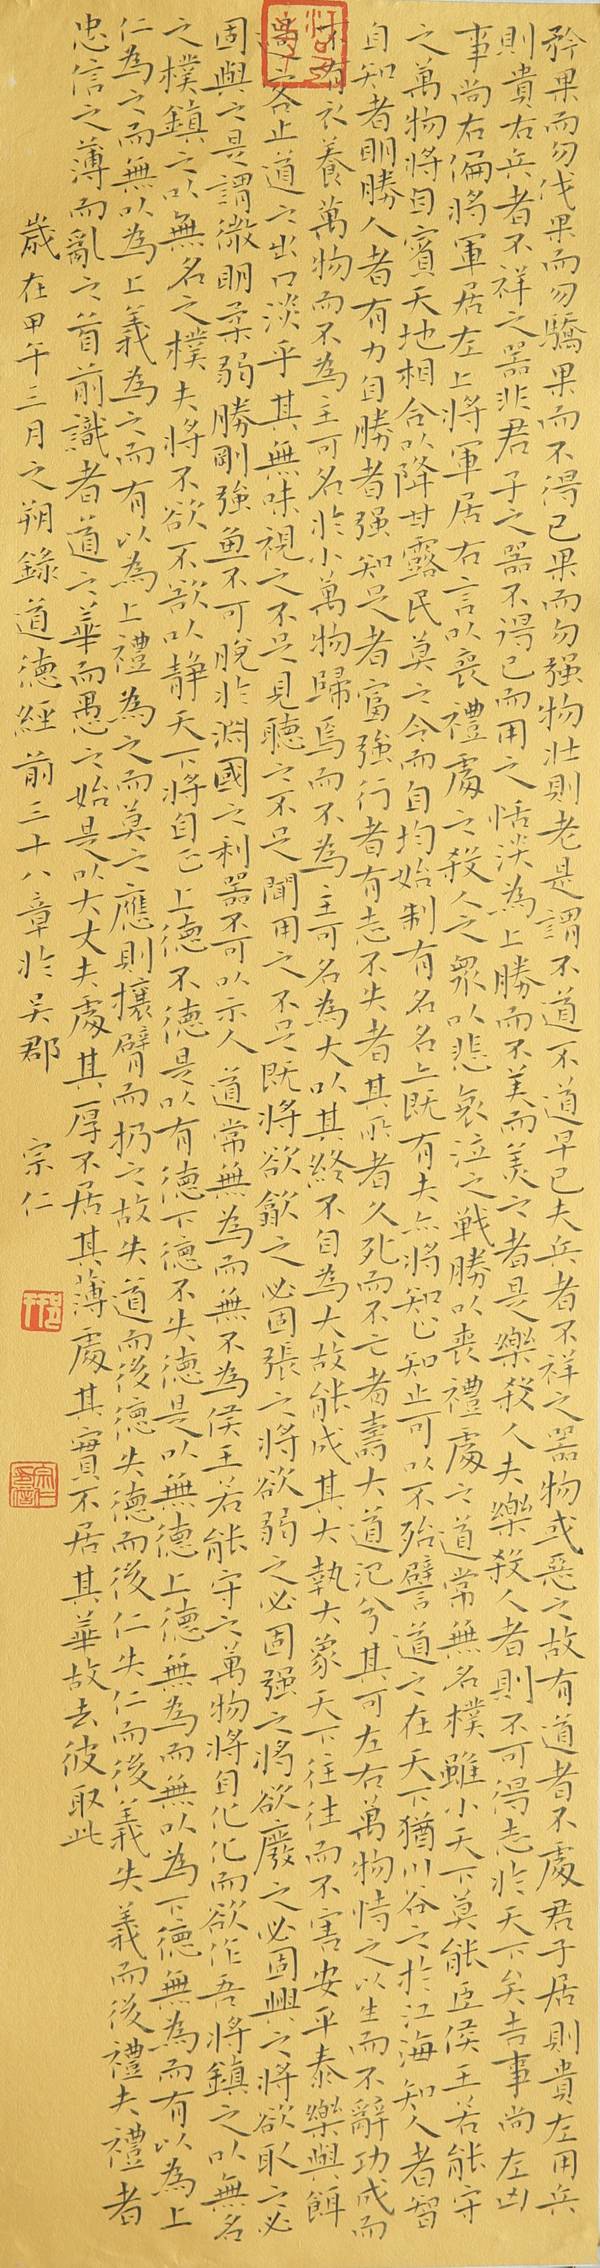 矜果而勿伐果而勿驕果而不得已果而勿强物壯則老是謂不道不道早已夫兵者不祥之器物或惡之故有道者不處君子居則貴左用兵
則貴右兵者不祥之器非君子之器不得已而用之恬淡為上勝而不美而美之者是樂殺人夫樂殺人者則不可得志於天下矣吉事尚左凶
事尚右偏將軍居左上將軍居右言以喪禮處之殺人之眾以悲哀泣之戰勝以喪禮處之道常無名樸雖小天下莫能臣侯王若能守
之萬物將自賓天地相合以降甘露民莫之令而自均始制有名名亦既有夫亦將知止知止可以不殆譬道之在天下猶川谷之於江海知人者智
自知者明勝人者有力自勝者强知足者富強行者有志不失者其所者久死而不亡者壽大道氾兮其可左右萬物恃之以生而不辭功成而
不有衣養萬物而不為主可名於小萬物歸焉而不為主可名為大以其終不自為大故能成其大執大象天下往往而不害安平泰樂與餌
過客止道之出口淡乎其無味視之不足見聽之不足聞用之不足既將欲歙之必固張之將欲弱之必固强之將欲廢之必固興之將欲取之必
固與之是謂微明柔弱勝剛強魚不可脫於淵國之利器不可以示人 道常無為而無不為侯王若能守之萬物將自化化而欲作吾將鎮之以無名
之樸鎮之以無名之樸夫將不欲不欲以静天下將自正上德不德是以有德下德不失德是以無德上德無為而無以為下德無為而有以為上
仁為之而無以為上義為之而有以為上禮為之而莫之應則攘臂而扔之故失道而後德失德而後仁失仁而後義失義而後禮夫禮者
忠信之薄而亂之首前識者道之華而愚之始是以大丈夫處其厚不居其薄處其實不居其華故去彼取此
歲在甲午三月之朔錄道德經前三十八章於吴郡 宗仁